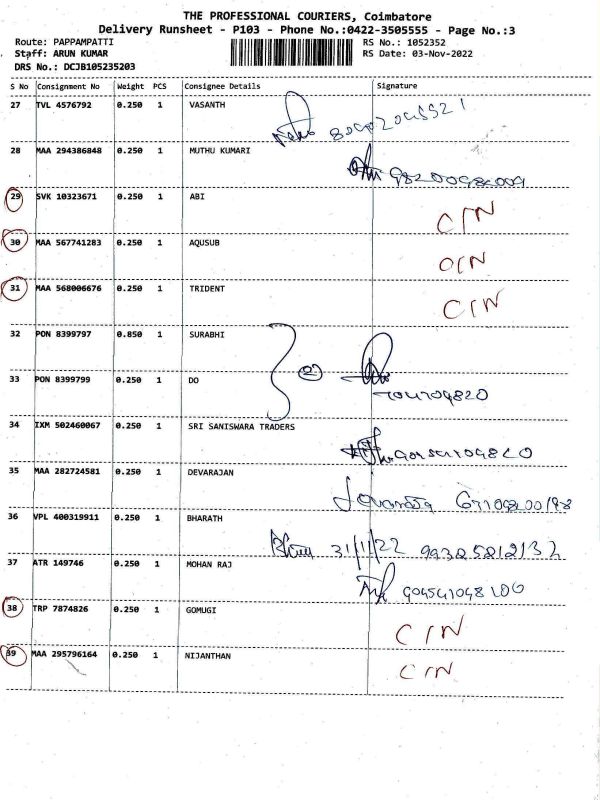 THE PROFESSIONAL COURIERS, Coimbatore
Delivery Runsheet - P103 - Phone No.:0422-3505555 - Page No.:3
Route: PAPPAMPATTI RS No.: 1052352
Staff: ARUN KUMAR RS Date: 03-Nov-2022
DRS No.: DCJB105235203
S No Consignment No Weight PCS Consignee Details Signature
27 TVL 4576792 0.250 1 VASANTH
28 MAA 294386848 0.250 1 MUTHU KUMARI
29 SVK 10323671 0.250 1 ABI C/N
30 MAA 567741283 0.250 1 AQUSUB C/N
31 MAA 568006676 0.250 1 TRIDENT C/N
32 PON 8399797 0.850 1 SURABHI
33 PON 8399799 0.250 1 DO 2
34 IXM 502460067 0.250 1 SRI SANISWARA TRADERS
35 MAA 282724581 0.250 1 DEVARAJAN
36 VPL 400319911 0.250 1 BHARATH 3/11/22
37 ATR 149746 0.250 1 MOHAN RAJ
38 TRP 7874826 0.250 1 GOMUGI C/N
39 MAA 295796164 0.250 1 NIJANTHAN C/N